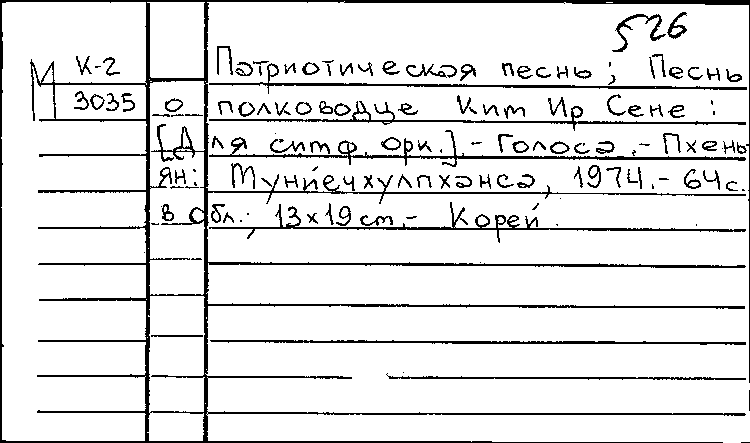 526
М К-2 Патриотическая песнь; Песнь
3035 о полководце Ким Ир Сене:
[Для симф. орк.].- Голоса.- Пхень
ян: Мунйечхулпханса, 1974.- 64с.
в обл.; 13х19 cm.- Корей.